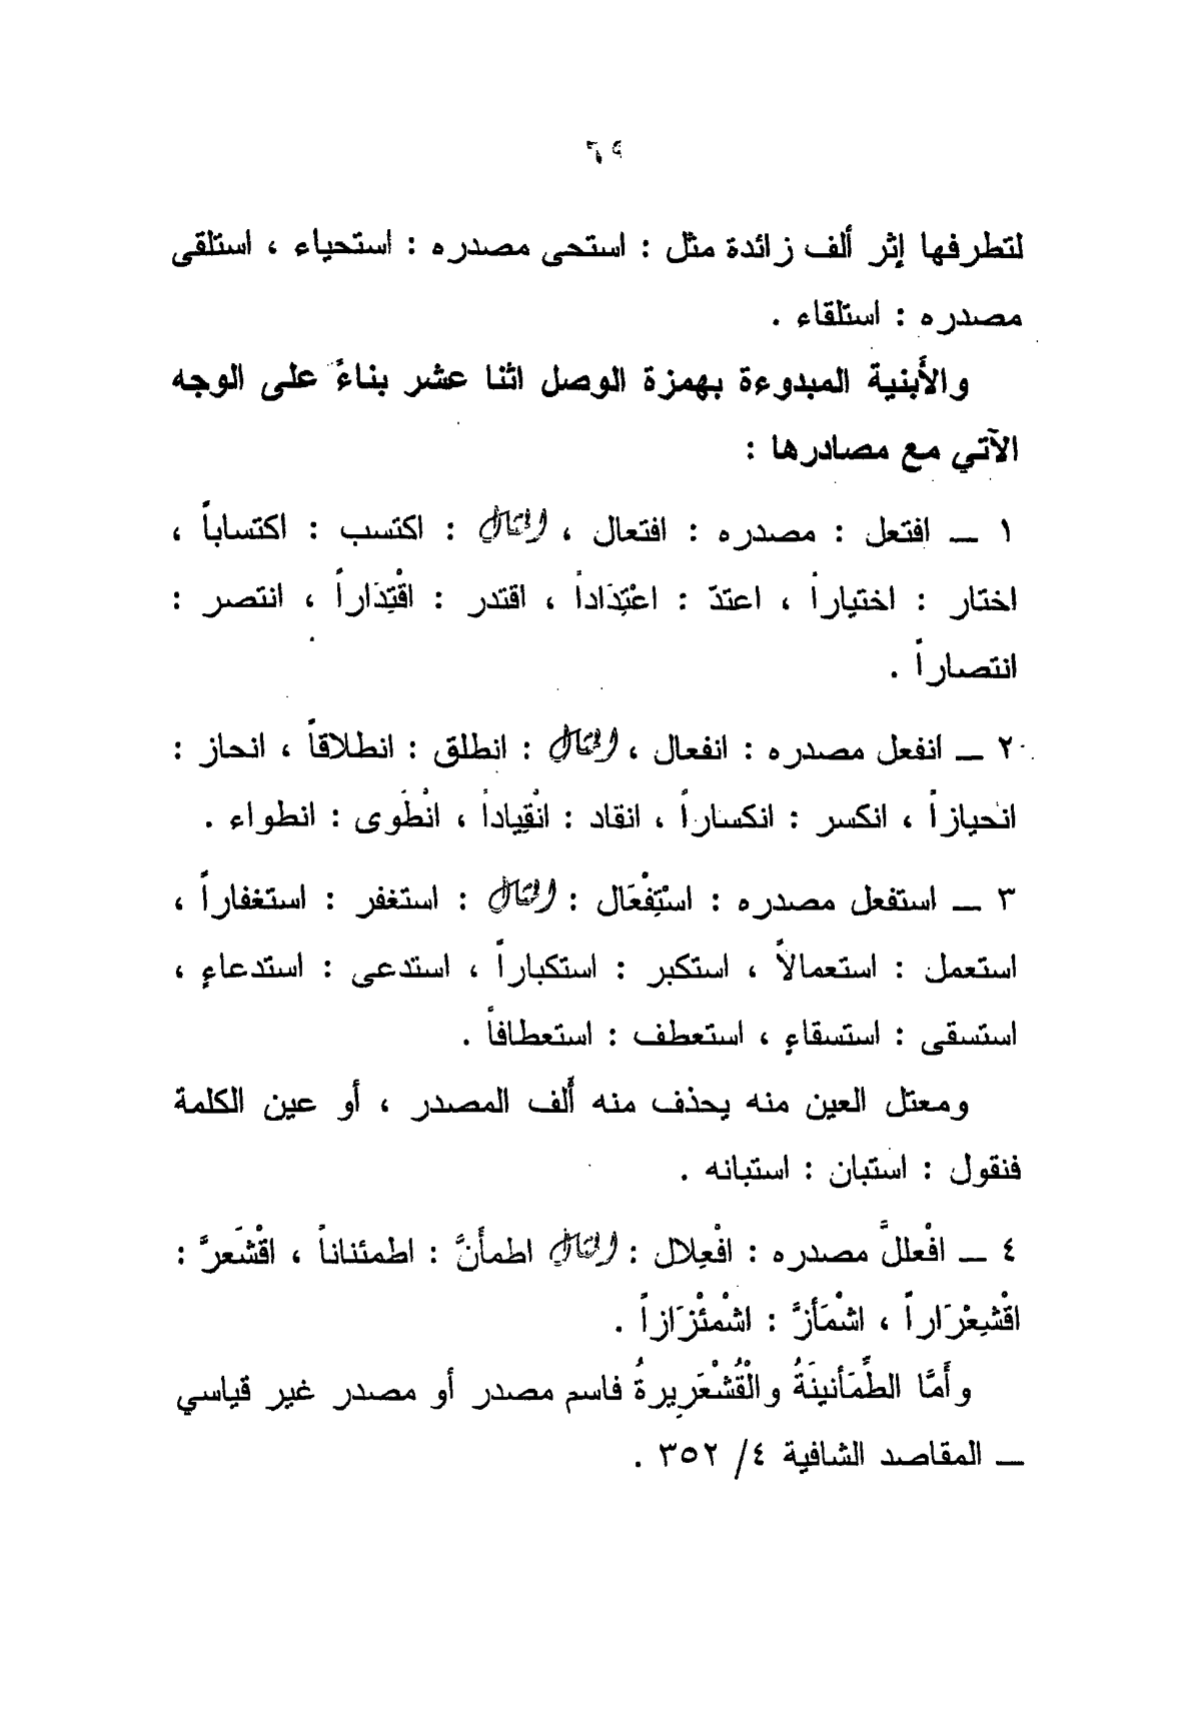 ٦٩
لتطرفها إثر ألف زائدة مثل : استحى مصدره : استحياء ، استلقى
مصدره : استلقاء .
والأبنية المبدوءة بهمزة الوصل اثنا عشر بناءً على الوجه
الآتي مع مصادرها :
١ ـ افتعل : مصدره : افتعال ، المثال : اكتسب : اكتساباً ،
اختار : اختياراً ، اعتدّ : اعْتِدَاداً ، اقتدر : اقْتِدَاراً ، انتصر :
انتصاراً .
٢ ـ انفعل مصدره : انفعال ، المثال : انطلق : انطلاقاً ، انحاز :
انحيازاً ، انكسر : انكساراً ، انقاد : انْقِياداً ، انْطَوى : انطواء .
٣ ـ استفعل مصدره : اسْتِفْعَال : المثال : استغفر : استغفاراً ،
استعمل : استعمالاً ، استكبر : استكباراً ، استدعى : استدعاءٍ ،
استسقى : استسقاءٍ ، استعطف : استعطافاً .
ومعتل العين منه يحذف منه ألف المصدر ، أو عين الكلمة
فنقول : استبان : استبانه .
٤ ـ افْعللَّ مصدره : افْعِلال : المثال اطمأَنَّ : اطمئناناً ، اقْشَعرَّ :
اقْشِعْرَاراً ، اشْمَأزَّ : اشْمئْزَازاً .
وأَمَّا الطُّمَأنينَةُ والْقُشْعَرِيرةُ فاسم مصدر أو مصدر غير قياسي
ـ المقاصد الشافية ٤/ ٣٥٢ .